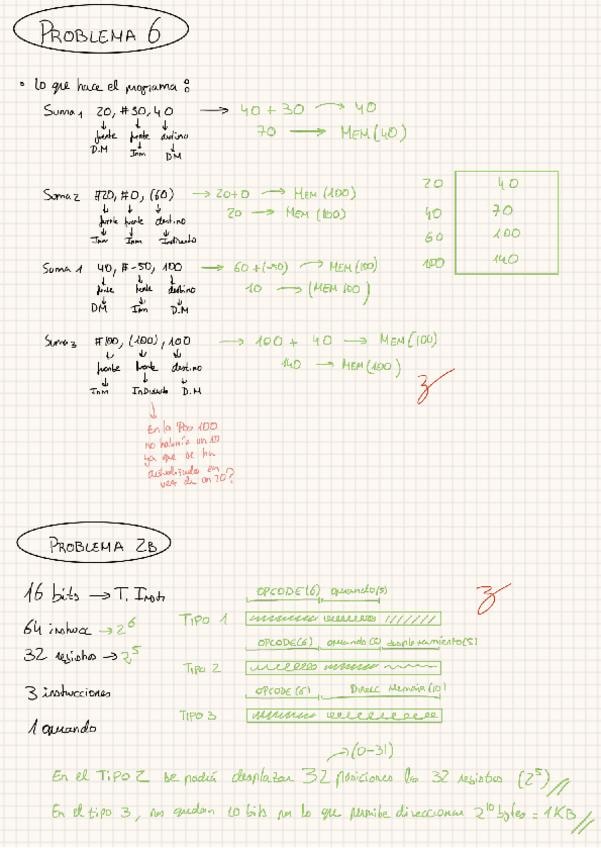 PROBLEMA 6
• lo que hace el programa:
Suma 1 20, #30, 40 → 40 + 30 → 40
fuente fuente destino 70 → MEM(40)
D.M Inm DM
20 40
40 70
60 100
100 140
Suma 2 #20, #0, (60) → 20+0 → MEM(100)
fuente fuente destino 20 → MEM(100)
Inm Inm Indirecto
Suma 1 40, #-50, 100 → 60+(-50) → MEM(100)
fuente fuente destino 10 → (MEM 100)
DM Inm D.M
Suma 3 #100, (100), 100 → 100 + 40 → MEM(100)
fuente fuente destino 140 → MEM(100)
Inm Indirecto D.M
En la Pos 100
no habría un 10
ya que se ha
actualizado en
vez de un 20?
PROBLEMA 2B
16 bits → T. Instr
64 instruc → 2^6
32 registros → 2^5
3 instrucciones
1 operando
OPCODE(6) operando(5)
TIPO 1
OPCODE(6) operando(5) desplazamiento(5)
TIPO 2
OPCODE(6) Direcc Memoria(10)
TIPO 3
→ (0-31)
En el TIPO 2 se podrá desplazar 32 posiciones los 32 registros (2^5)
En el tipo 3, nos quedan 10 bits por lo que permite direccionar 2^10 bytes = 1KB